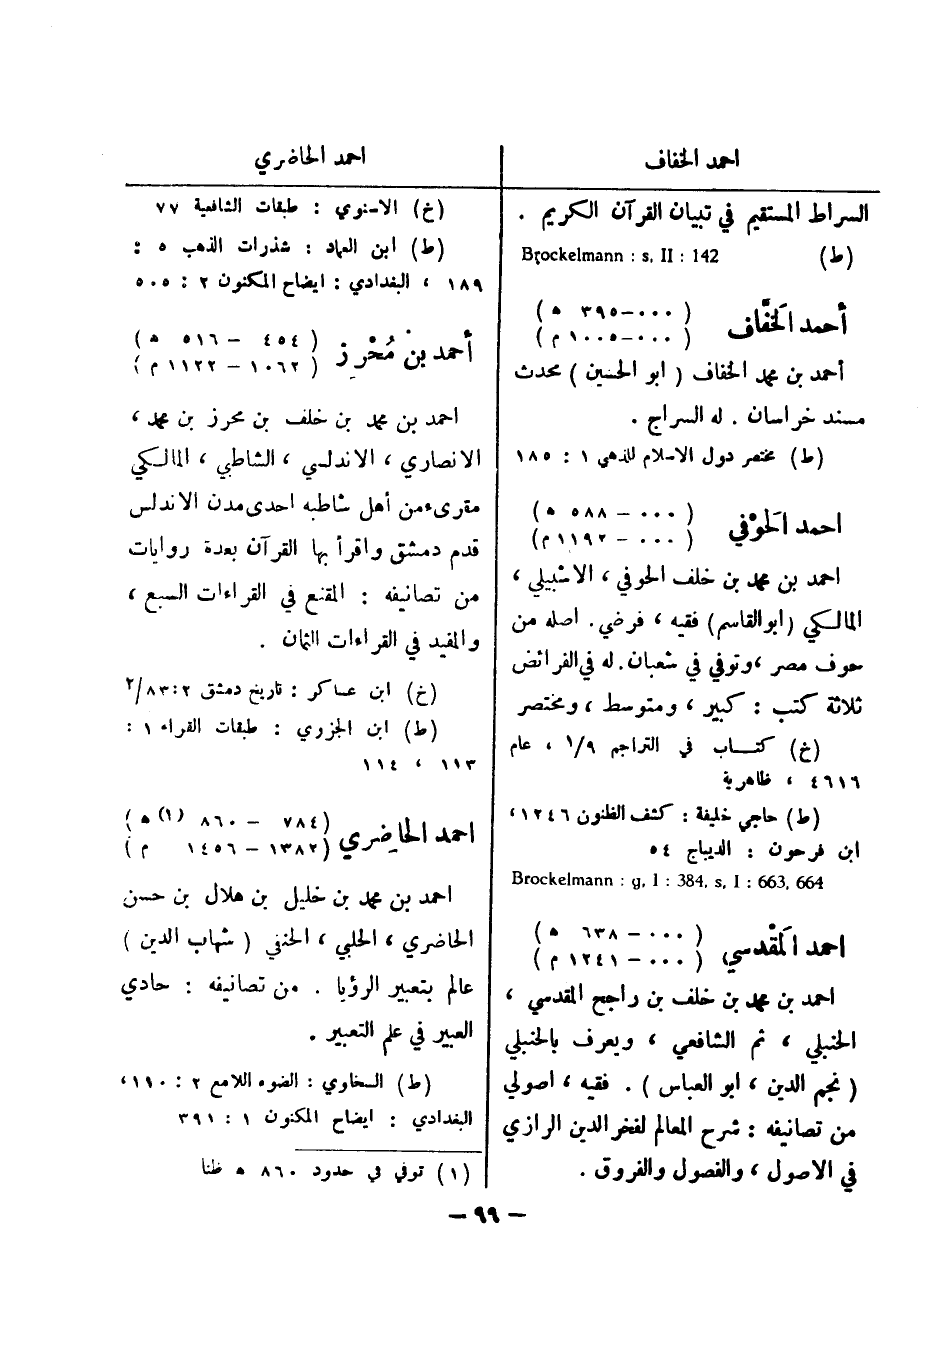 احمد الخفاف
السراط المستقيم في تبيان القرآن الكريم .
(ط) Brockelmann : s, II : 142
أحمد الخَفَّاف (٠٠٠ – ٣٩٥ ه)
(٠٠٠ – ١٠٠٥ م)
أحمد بن محمد الخفاف ( ابو الحسين ) محدث
مسند خراسان . له السراج .
(ط) مختصر دول الاسلام للذهبي ١ : ١٨٥
احمد الحَوْفي (٠٠٠ – ٥٨٨ ه)
(٠٠٠ – ١١٩٢ م)
احمد بن محمد بن خلف الحوفي ، الاشبيلي ،
المالكي (ابو القاسم) فقيه ، فرضي . اصله من
حوف مصر ، وتوفي في شعبان . له في الفرائض
ثلاثة كتب : كبير ، ومتوسط ، ومختصر
(خ) كتاب في التراجم ١/٩ ، عام
٤٦١٦ ، ظاهرية
(ط) حاجي خليفة : كشف الظنون ١٢٤٦ ،
ابن فرحون : الديباج ٥٤
Brockelmann : g, I : 384, s, I : 663, 664
احمد المَقْدسي (٠٠٠ – ٦٣٨ ه)
(٠٠٠ – ١٢٤١ م)
احمد بن محمد بن خلف بن راجح المقدسي ،
الحنبلي ، ثم الشافعي ، ويعرف بالحنبلي
( نجم الدين ، ابو العباس ) . فقيه ، اصولي
من تصانيفه : شرح المعالم لفخر الدين الرازي
في الاصول ، والفصول والفروق .
احمد الحاضري
(خ) الاسنوي : طبقات الشافعية ٧٧
(ط) ابن العماد : شذرات الذهب ٥ :
١٨٩ ، البغدادي : ايضاح المكنون ٢ : ٥٠٥
أحمد بنْ مُحْرِز (٤٥٤ – ٥١٦ ه)
(١٠٦٢ – ١١٢٢ م)
احمد بن محمد بن خلف بن محرز بن محمد ،
الانصاري ، الاندلسي ، الشاطبي ، المالكي
مقرىء من أهل شاطبه احدى مدن الاندلس
قدم دمشق واقرأ بها القرآن بعدة روايات
من تصانيفه : المقنع في القراءات السبع ،
والمفيد في القراءات الثمان .
(خ) ابن عساكر : تاريخ دمشق ٢ : ٢/٨٣
(ط) ابن الجزري : طبقات القراء ١ :
١١٣ ، ١١٤
احمد الحاضِري (٧٨٤ – ٨٦٠ (١) ه)
(١٣٨٢ – ١٤٥٦ م)
احمد بن محمد بن خليل بن هلال بن حسن
الحاضري ، الحلبي ، الحنفي ( شهاب الدين )
عالم بتعبير الرؤيا . من تصانيفه : حادي
العبير في علم التعبير .
(ط) السخاوي : الضوء اللامع ٢ : ١١٠ ،
البغدادي : ايضاح المكنون ١ : ٣٩١
(١) توفي في حدود ٨٦٠ ه ظنا
– ٩٩ –